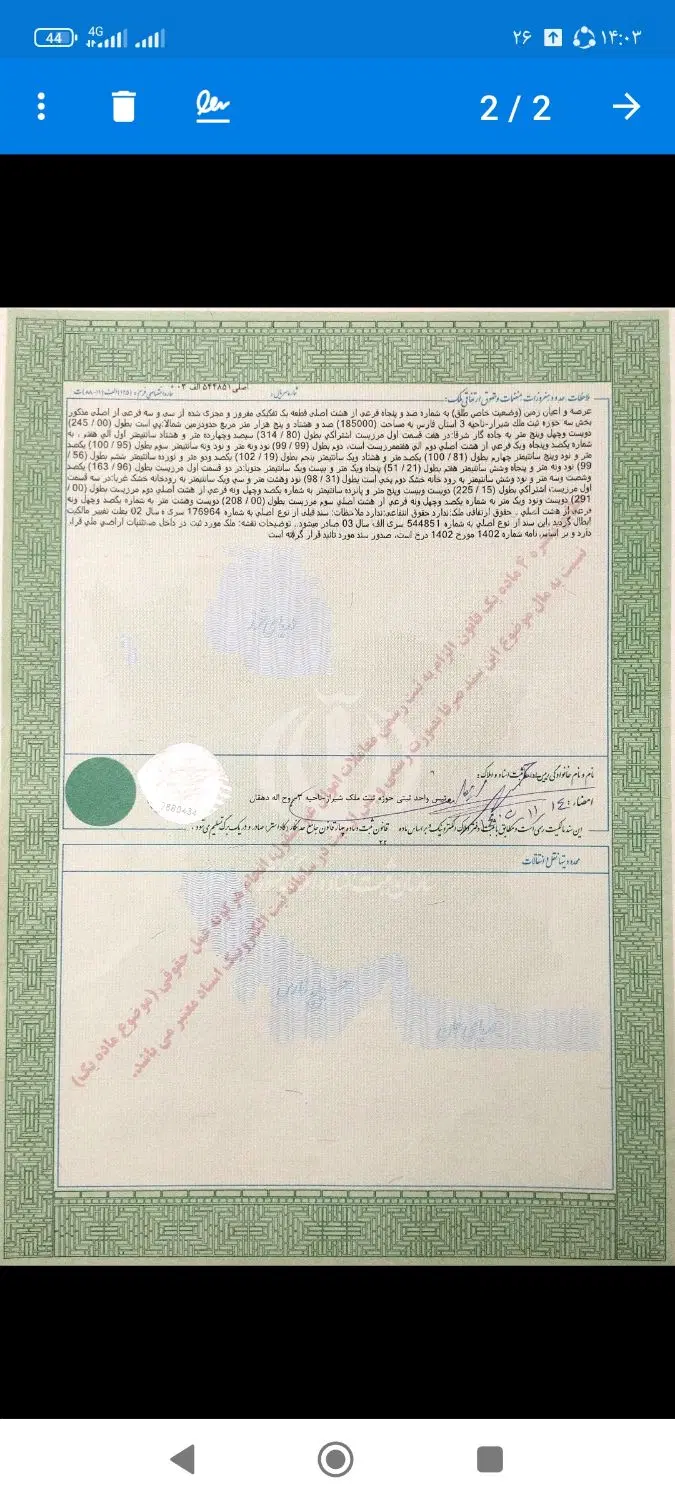 44
4G
۲۶
۱۴:۰۳
2 / 2
ملاحظات حدود، مفروزات، منضمات و حقوق ارتفاقی ملک:
شماره سریال:
اصلی ۵۴۴۸۵۱ الف ۰۳
عرصه و اعیان زمین (وضعیت خاص طلق) به شماره صد و پنجاه فرعی از هشت اصلی قطعه یک تفکیکی مفروز و مجزی شده از سی و سه فرعی از اصلی مذکور
بخش سه حوزه ثبت ملک شیراز-ناحیه 3 استان فارس به مساحت (185000) صد و هشتاد و پنج هزار متر مربع حدودزمین شمالا:پی است بطول (00 / 245)
دویست وچهل وپنج متر به جاده گار شرقا:در هفت قسمت اول مرزیست اشتراکی بطول (80 / 314) سیصد وچهارده متر و هشتاد سانتیمتر اول الی هفتم ، به
شماره یکصد وپنجاه ویک فرعی از هشت اصلی دوم الی هفتممرزیست است، دوم بطول (99 / 99) نود ونه متر و نود ونه سانتیمتر سوم بطول (95 / 100) یکصد
متر و نود وپنج سانتیمتر چهارم بطول (81 / 100) یکصد متر و هشتاد ویک سانتیمتر پنجم بطول (19 / 102) یکصد ودو متر و نوزده سانتیمتر ششم بطول (56 /
99) نود ونه متر و پنجاه وشش سانتیمتر هفتم بطول (21 / 51) پنجاه ویک متر و بیست ویک سانتیمتر جنوبا:در دو قسمت اول مرزیست بطول (96 / 163) یکصد
وشصت وسه متر و نود وشش سانتیمتر به رود خانه خشک دوم پخی است بطول (31 / 98) نود وهشت متر و سی ویک سانتیمتر به رودخانه خشک غربا:در سه قسمت
اول مرزیست اشتراکی بطول (15 / 225) دویست وبیست وپنج متر و پانزده سانتیمتر به شماره یکصد وچهل ونه فرعی از هشت اصلی دوم مرزیست بطول (00 /
291) دویست ونود ویک متر به شماره یکصد وچهل ونه فرعی از هشت اصلی سوم مرزیست بطول (00 / 208) دویست وهشت متر به شماره یکصد وچهل ونه
فرعی از هشت اصلی . حقوق ارتفاقی ملک:ندارد حقوق انتفاعی:ندارد ملاحظات: سند قبلی از نوع اصلی به شماره 176964 سری ه سال 02 بعلت تغییر مالکیت
ابطال گردید ،این سند از نوع اصلی به شماره 544851 سری الف سال 03 صادر میشود. توضیحات نقشه: ملک مورد ثبت در داخل مستثنیات اراضی ملی قرار
دارد و بر اساس نامه شماره 1402 مورخ 1402 درج است، صدور سند مورد تائید قرار گرفته است
ماده یک قانون الزام به ثبت رسمی معاملات اموال غیر منقول، انجام هر گونه عمل حقوقی (موضوع ماده یک)
نسبت به مال موضوع این سند صرفا بصورت رسمی و در سامانه ثبت الکترونیک اسناد معتبر می باشد.
نام و نام خانوادگی رییس اداره ثبت اسناد و املاک:
رئیس واحد ثبتی حوزه ثبت ملک شیراز-ناحیه ۳ روح اله دهقان
امضاء:
این سند مالکیت رسمی است و مطابق با ثبت دفتر املاک الکترونیک نیز بر اساس ماده ۲۲ قانون ثبت و ماده چهار قانون جامع حدنگار(کاداستر) صادر و در یک برگ تسلیم می شود.
محدودیتها نقل و انتقالات